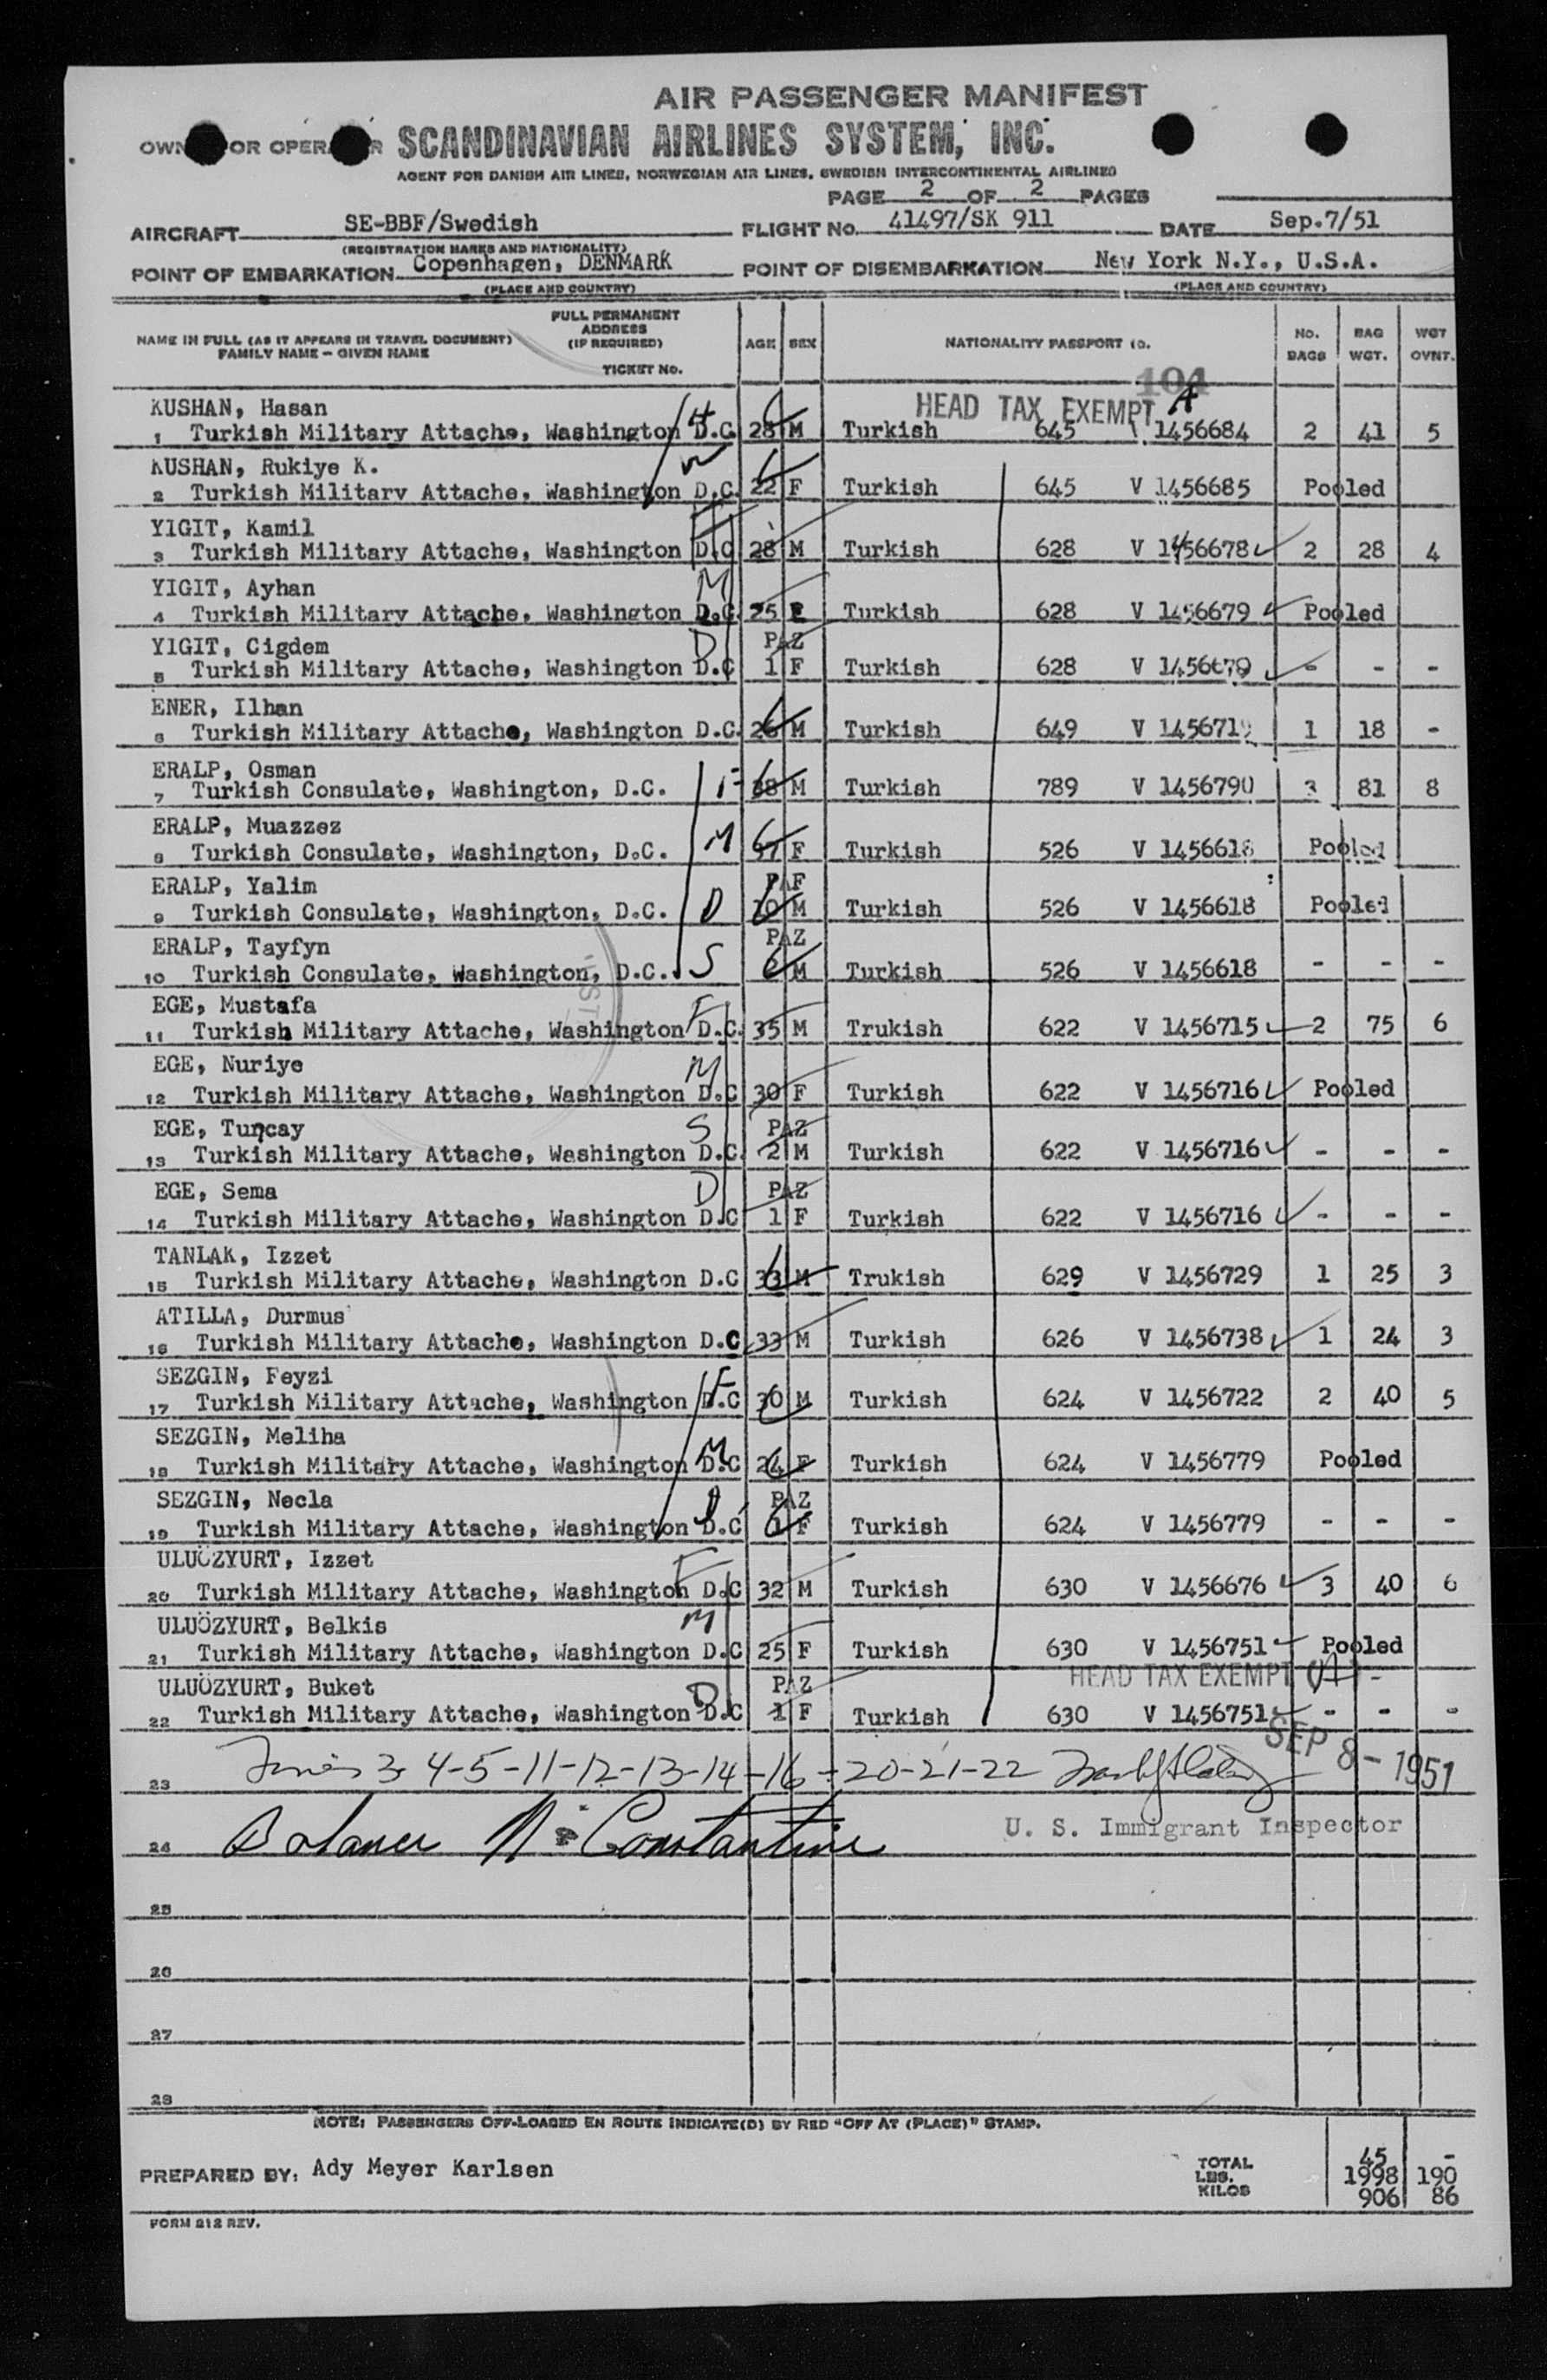 AIR PASSENGER MANIFEST
OWN OR OPERA R SCANDINAVIAN AIRLINES SYSTEM, INC.
AGENT FOR DANISH AIR LINES, NORWEGIAN AIR LINES, SWEDISH INTERCONTINENTAL AIRLINES
PAGE 2 OF 2 PAGES
AIRCRAFT SE-BBF/Swedish FLIGHT No. 41497/SK 911 DATE Sep.7/51
(REGISTRATION MARKS AND NATIONALITY)
POINT OF EMBARKATION Copenhagen, DENMARK POINT OF DISEMBARKATION New York N.Y., U.S.A.
(PLACE AND COUNTRY) (PLACE AND COUNTRY)
NAME IN FULL (AS IT APPEARS IN TRAVEL DOCUMENT) FAMILY NAME - GIVEN NAME FULL PERMANENT ADDRESS (IF REQUIRED) TICKET No. AGE SEX NATIONALITY PASSPORT No. BAGS BAG WGT. WGT OVNT.
104
HEAD TAX EXEMPT A
KUSHAN, Hasan H
1 Turkish Military Attache, Washington D.C. 28 M Turkish 645 1456684 2 41 5
KUSHAN, Rukiye K. W
2 Turkish Military Attache, Washington D.C. 22 F Turkish 645 V 1456685 Pooled
YIGIT, Kamil F
3 Turkish Military Attache, Washington D.C 28 M Turkish 628 V 1456678 2 28 4
YIGIT, Ayhan M
4 Turkish Military Attache, Washington D.C. 25 F Turkish 628 V 1456679 Pooled
YIGIT, Cigdem D PAZ
5 Turkish Military Attache, Washington D.C 1 F Turkish 628 V 1456679 - - -
ENER, Ilhan
6 Turkish Military Attache, Washington D.C. 26 M Turkish 649 V 1456719 1 18 -
ERALP, Osman
7 Turkish Consulate, Washington, D.C. F 38 M Turkish 789 V 1456790 3 81 8
ERALP, Muazzez
8 Turkish Consulate, Washington, D.C. M 37 F Turkish 526 V 1456618 Pooled
ERALP, Yalim PAF
9 Turkish Consulate, Washington, D.C. D 10 M Turkish 526 V 1456618 Pooled
ERALP, Tayfyn PAZ
10 Turkish Consulate, Washington, D.C. S 2 M Turkish 526 V 1456618 - - -
EGE, Mustafa F
11 Turkish Military Attache, Washington D.C. 35 M Trukish 622 V 1456715 2 75 6
EGE, Nuriye M
12 Turkish Military Attache, Washington D.C 30 F Turkish 622 V 1456716 Pooled
EGE, Tuncay S PAZ
13 Turkish Military Attache, Washington D.C. 2 M Turkish 622 V 1456716 - - -
EGE, Sema D PAZ
14 Turkish Military Attache, Washington D.C 1 F Turkish 622 V 1456716 - - -
TANLAK, Izzet
15 Turkish Military Attache, Washington D.C 33 M Trukish 629 V 1456729 1 25 3
ATILLA, Durmus
16 Turkish Military Attache, Washington D.C 33 M Turkish 626 V 1456738 1 24 3
SEZGIN, Feyzi F
17 Turkish Military Attache, Washington D.C 30 M Turkish 624 V 1456722 2 40 5
SEZGIN, Meliha M
18 Turkish Military Attache, Washington D.C 24 F Turkish 624 V 1456779 Pooled
SEZGIN, Necla D PAZ
19 Turkish Military Attache, Washington D.C 1 F Turkish 624 V 1456779 - - -
ULUÖZYURT, Izzet F
20 Turkish Military Attache, Washington D.C 32 M Turkish 630 V 1456676 3 40 6
ULUÖZYURT, Belkis M
21 Turkish Military Attache, Washington D.C 25 F Turkish 630 V 1456751 Pooled
HEAD TAX EXEMPT
ULUÖZYURT, Buket D PAZ
22 Turkish Military Attache, Washington D.C 1 F Turkish 630 V 1456751 - - -
SEP 8 - 1951
23 3 4-5-11-12-13-14-16-20-21-22
24 Balance Constantine U. S. Immigrant Inspector
25
26
27
28
NOTE: PASSENGERS OFF-LOADED EN ROUTE INDICATE(D) BY RED "OFF AT (PLACE)" STAMP.
PREPARED BY: Ady Meyer Karlsen
TOTAL 45 -
LBS. 1998 190
KILOS 906 86
FORM 212 REV.